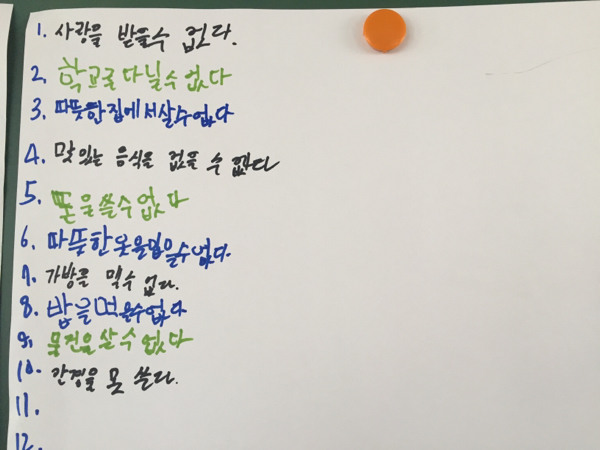 1. 사랑을 받을수 없다.
2. 학교를 다닐수 없다
3. 따뜻한 집에서 살수 없다
4. 맛있는 음식을 먹을 수 없다
5. 폰을 쓸수 없다
6. 따뜻한 옷을 입을 수 없다.
7. 가방를 밀수 없다.
8. 밥을 먹을수 없다
9. 물건을 살 수 없다
10. 안경을 못 쓴다.
11.
12.